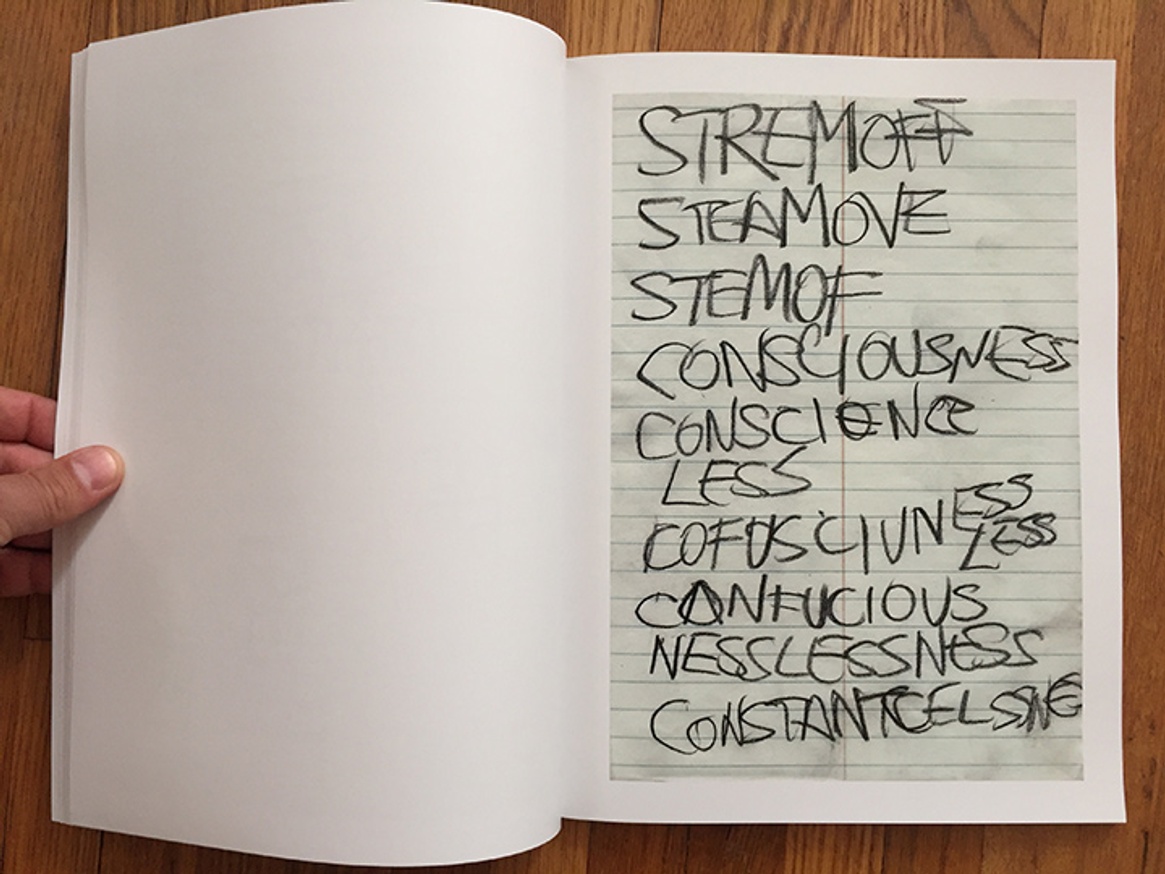 STREMOFF
STEAMOVE
STEMOF
CONSCIOUSNESS
CONSCIENCE
LESS
COFUSCIUNESS
LESS
CANFUCIOUS
NESSLESSNESS